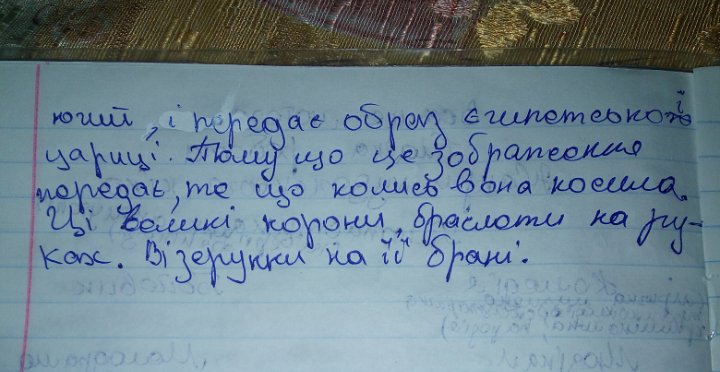 ючий, і передає образ єгипетської
цариці. Тому що це зображення
передає, те що колись вона носила.
Ці великі корони, браслоти на ру-
ках. Візерунки на її брані.